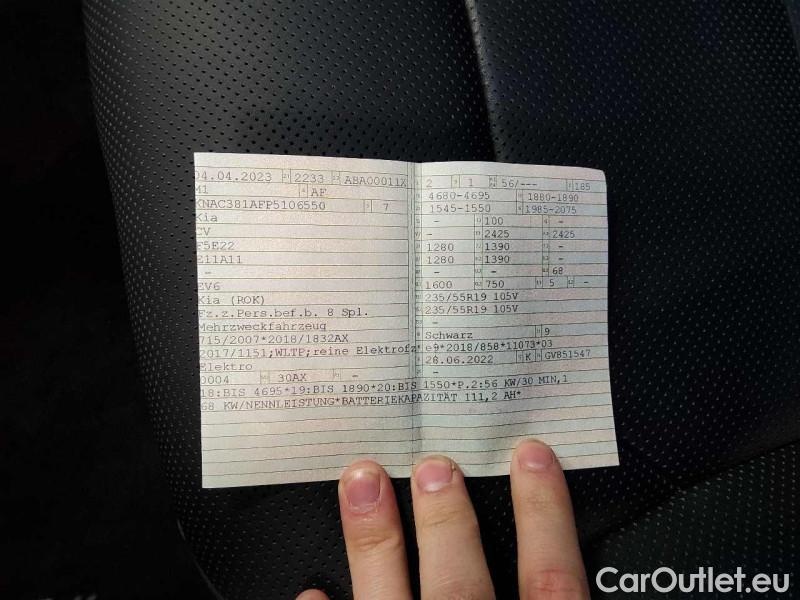 04.04.2023 2233 ABA00011X
M1 AF
KNAC381AFP5106550 7
Kia
CV
F5E22
E11A11
-
EV6
Kia (ROK)
Fz.z.Pers.bef.b. 8 Spl.
Mehrzweckfahrzeug
715/2007*2018/1832AX
2017/1151;WLTP;reine Elektrofz*
Elektro
0004 30AX -
2 1 56/--- 185
4680-4695 1880-1890
1545-1550 1985-2075
- 100 -
- 2425 2425
1280 1390 -
1280 1390 -
- - 68
1600 750 5 -
235/55R19 105V
235/55R19 105V
-
Schwarz 9
e9*2018/858*11073*03
28.06.2022 K GV851547
-
18:BIS 4695*19:BIS 1890*20:BIS 1550*P.2:56 KW/30 MIN,1
68 KW/NENNLEISTUNG*BATTERIEKAPAZITÄT 111,2 AH*
CarOutlet.eu